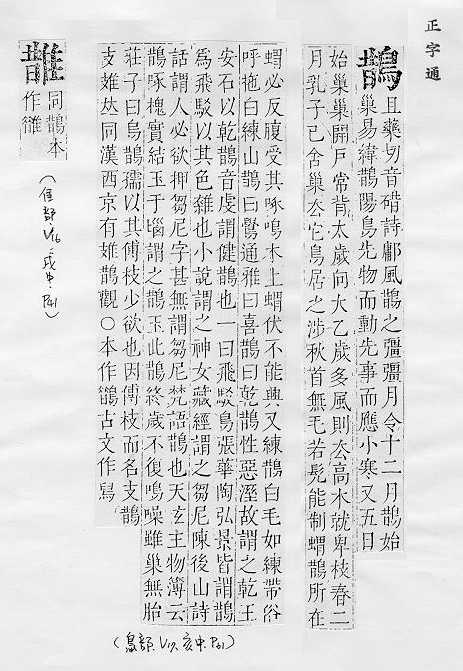 正字通
鵲 且藥切音碏詩鄘風鵲之彊彊月令十二月鵲始
巢易緯鵲陽鳥先物而動先事而應小寒又五日
始巢巢開戶常背太歲向大乙歲多風則厺高木就卑枝春二
月乳子已舍巢厺它鳥居之涉秋首無毛若髡能制蝟鵲所在
蝟必反腹受其啄鳴木上蝟伏不能興又練鵲白毛如練帶俗
呼拖白練山鵲曰鷽通雅曰喜鵲曰乾鵲性惡溼故謂之乾王
安石以乾鵲音虔謂健鵲也一曰飛駁鳥張華陶弘景皆謂鵲
爲飛駁以其色雜也小說謂之神女藏經謂之芻尼陳後山詩
話謂人必欲押芻尼字甚無謂芻尼梵語鵲也天玄主物簿云
鵲啄槐實結玉于腦謂之鵲玉此鵲終歲不復鳴噪雖巢無胎
莊子曰烏鵲孺以其傅枝少欲也因傅枝而名支鵲
支䧿𠀤同漢西京有䧿鵲觀○本作䧿古文作舄
(鳥部.V17.亥中.P31)
䧿 同鵲本
作
(隹部V16.戌中.P31)